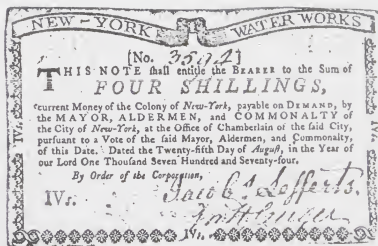 NEW-YORK WATER WORKS
[No. 3594]
THIS NOTE shall entitle the BEARER to the Sum of
FOUR SHILLINGS,
current Money of the Colony of New-York, payable on DEMAND, by
the MAYOR, ALDERMEN, and COMMONALTY of
the City of New-York, at the Office of Chamberlain of the said City,
pursuant to a Vote of the said Mayor, Aldermen, and Commonalty,
of this Date. Dated the Twenty-fifth Day of August, in the Year of
our Lord One Thousand Seven Hundred and Seventy-four.
By Order of the Corporation,
IVs.
Jacobs Lefferts.
IVs.
IVs.
IVs.